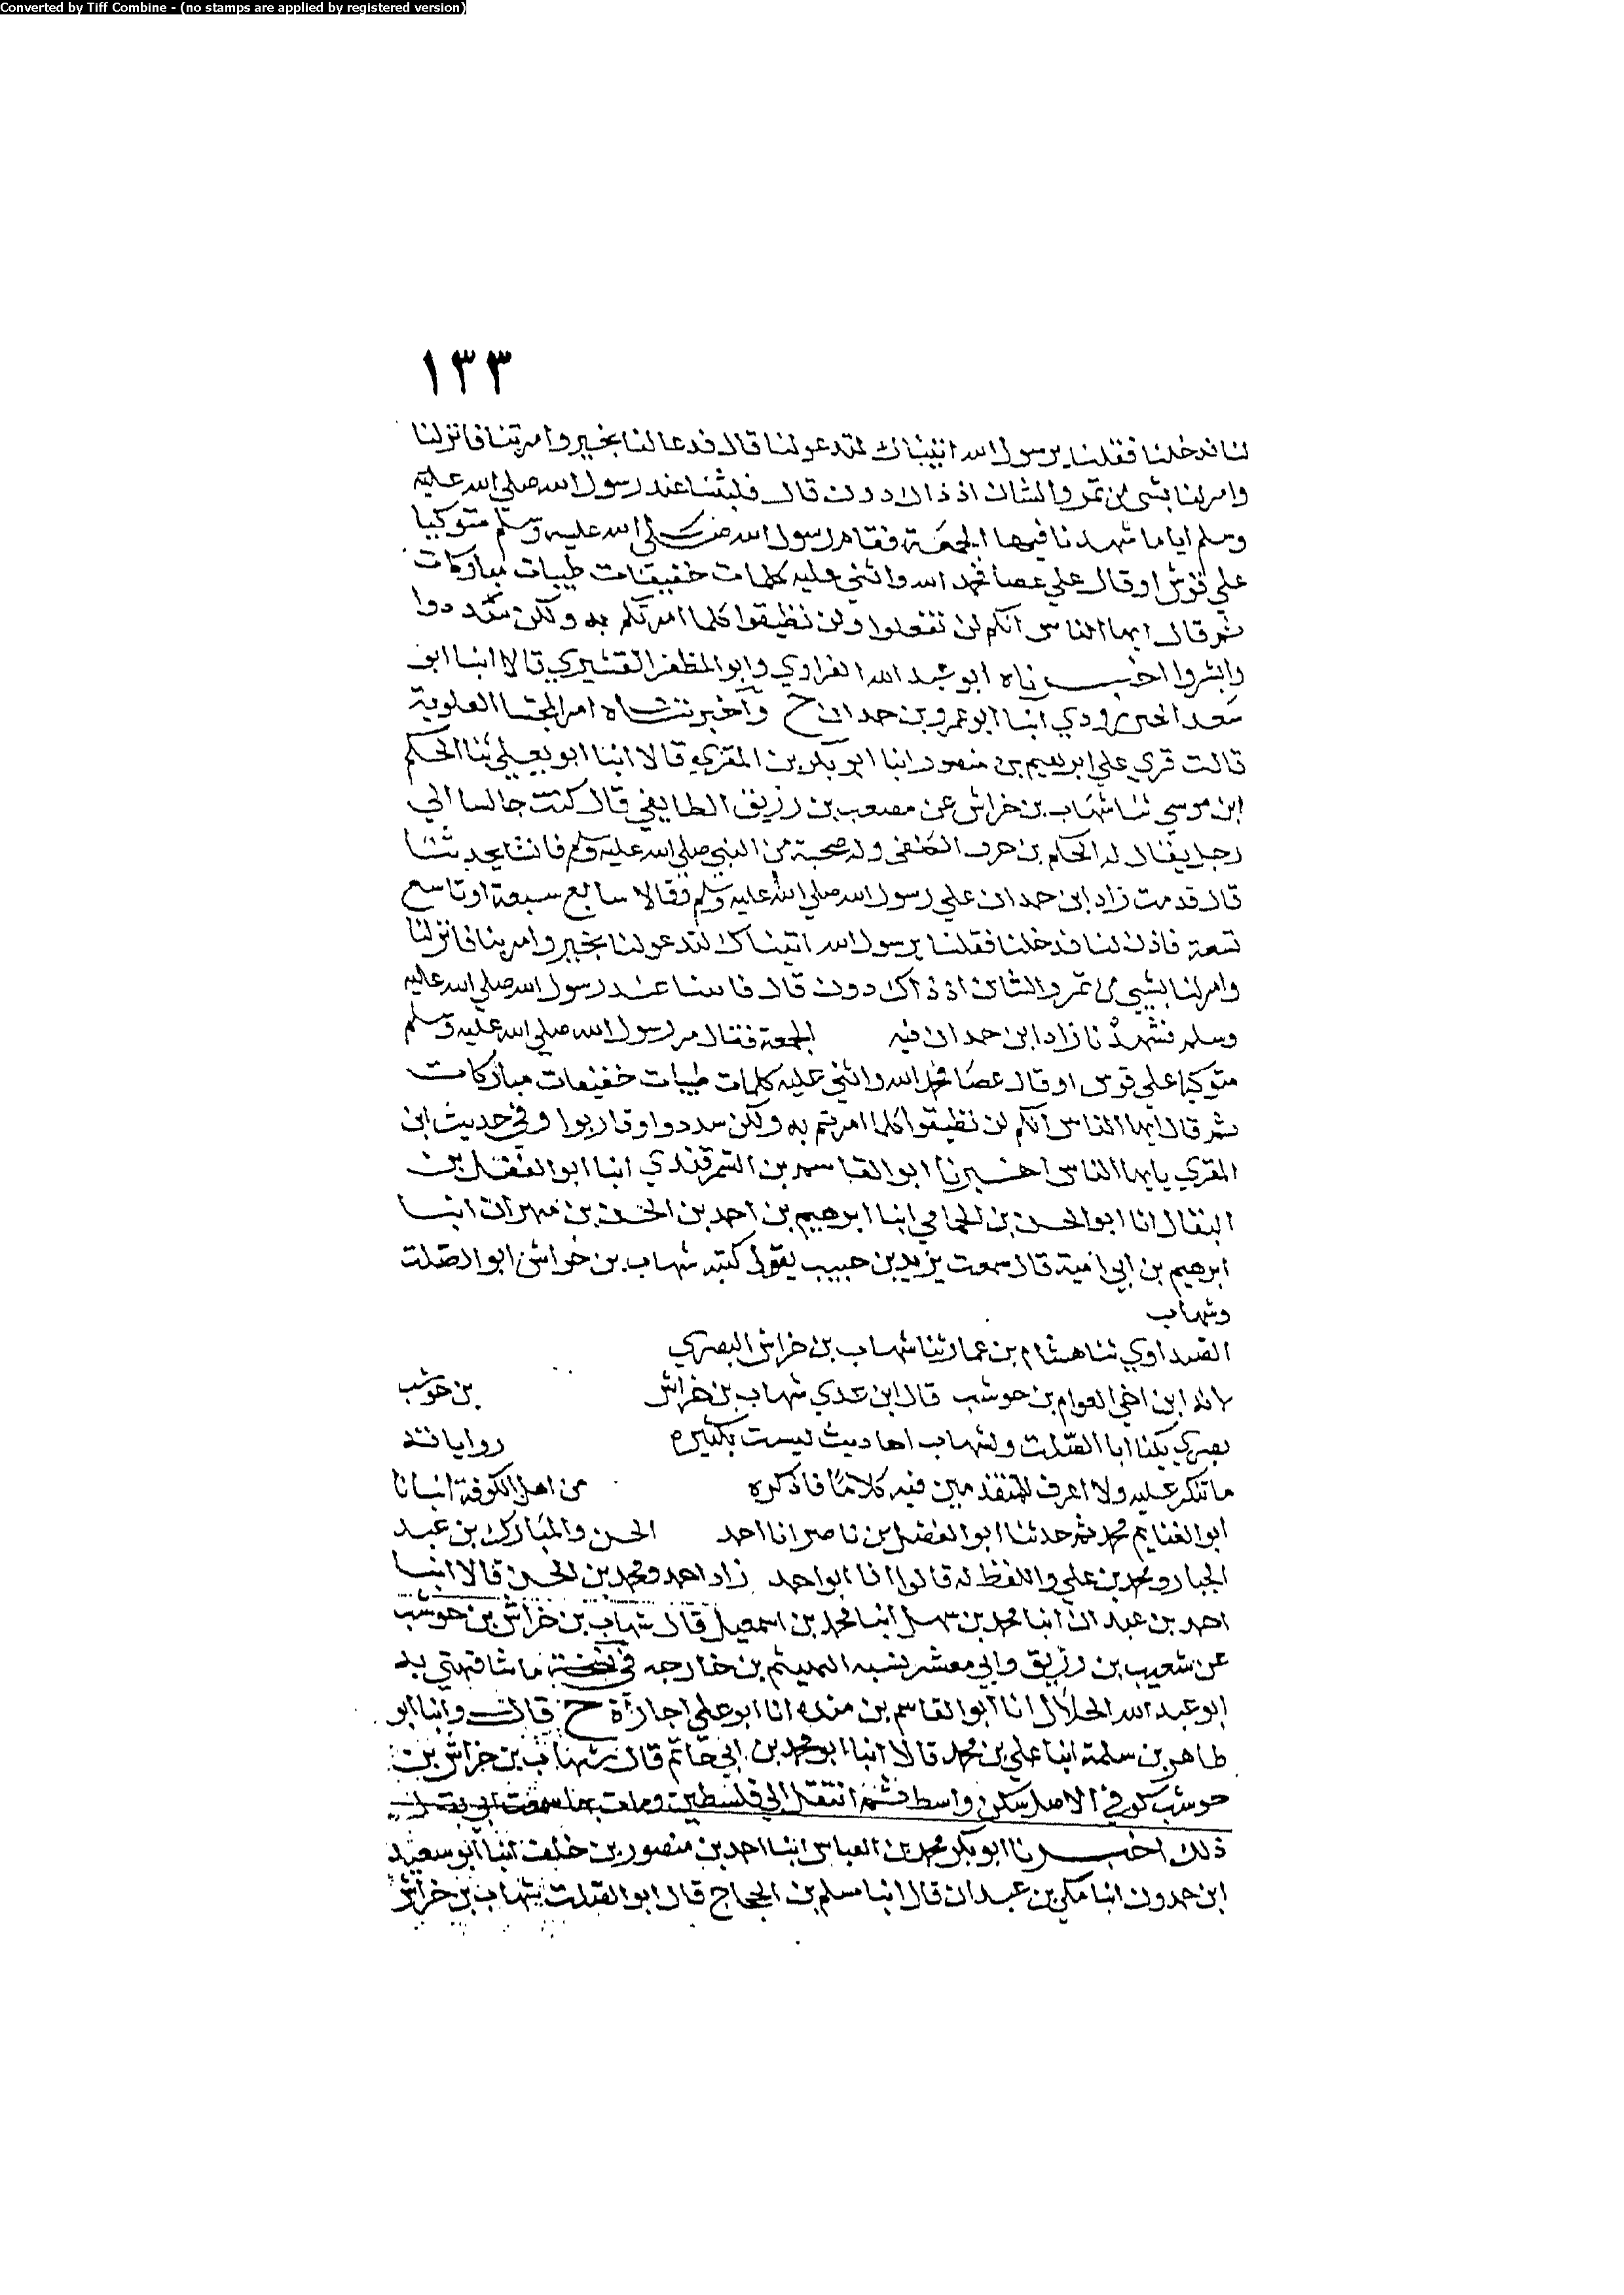 Converted by Tiff Combine - (no stamps are applied by registered version)
١٣٣
لنا فدخلنا فقلنا يرسول الله اتيناك لتدعو لنا قال فدعا لنا بخير وامر بنا فانزلنا
وامر لنا بشي من تمر والشان اذ ذاك دون قال فلبثنا عند رسول الله صلي الله عليه
وسلم اياما شهدنا فيها الجمعة فقام رسول الله صلي الله عليه وسلم متوكيا
علي قوس او قال علي عصا فحمد الله واثني عليه كلمات خفيفات طيبات مباركات
ثم قال ايها الناس انكم لن تفعلوا ولن تطيقوا كلما امرتكم به ولكن سددوا
وابشروا اخبرناه ابو عبد الله الفراوي وابو المظفر القشيري قالا انبا ابو
سعد الجنزرودي انبا ابو عمرو بن حمدان ح واخبرتناه ام المجتبا العلوية
قالت قري علي ابرهيم بن منصور انبا ابو بكر بن المقري قالا انبا ابو يعلي ثنا الحكم
ابن موسي ثنا شهاب بن خراش عن مصعب بن رزيق الطايفي قال كنت جالسا الي
رجل يقال له الحكم بن حزن الكلفي وله صحبة من النبي صلي الله عليه وسلم فانشا يحدثنا
قال قدمت زاد ابن حمدان علي رسول الله صلي الله عليه وسلم فقالا سابع سبعة او تاسع
تسعة فاذن لنا فدخلنا فقلنا يرسول الله اتيناك لتدعو لنا بخير وامر بنا فانزلنا
وامر لنا بشي من تمر والشان اذ ذاك دون قال عند رسول الله صلي الله عليه
وسلم فشهدنا زاد ابن حمدان فيه الجمعة فقال مر رسول الله صلي الله عليه وسلم
متوكيا علي قوس او قال عصا فحمد الله واثني عليه كلمات طيبات خفيفات مباركات
ثم قال ايها الناس انكم لن تطيقوا كلما امرتم به ولكن سددوا وقاربوا وفي حديث ابن
المقري يايها الناس اخبرنا ابو القاسم بن السمرقندي انبا ابو الفضل بن
البقال انا ابو الحسن بن الحمامي انبا ابرهيم بن احمد بن الحسن بن مهران انبا
ابرهيم بن ابي امية قال سمعت يزيد بن حبيب يقول كنية شهاب بن خراش ابو الصلت
وشهاب
الصيداوي ثنا هشام بن عمار ثنا شهاب بن خراش البصري
لانه ابن اخي العوام بن حوشب قال ابن عدي شهاب بن خراش بن حوشب
بصري يكنا ابا الصلت ولشهاب احاديث ليست بكثيره رواياته
ما تنكر عليه ولا اعرف للمتقدمين فيه كلاما فاذكره من اهل الكوفة انبانا
ابو الغنايم محمد ثم حدثنا ابو الفضل بن ناصر انا احمد الحسن والمبارك بن عبد
الجبار ومحمد بن علي واللفظ له قالوا انا ابو احمد زاد احمد ومحمد بن الحسن قالا انبا
احمد بن عبدان انبا محمد بن سهل انبا محمد بن اسمعيل قال شهاب بن خراش بن حوشب
عن شعيب بن رزيق وابي معشر نسبه الهيثم بن خارجه في نسخة ما شافهني به
ابو عبد الله الخلال انا ابو القاسم بن منده انا ابو علي اجازة ح قال وانبا ابو
طاهر بن سلمة انبا علي بن محمد قالا انبا ابو محمد بن ابي حاتم قال شهاب بن خراش بن
حوشب كوفي الاصل سكن واسط ثم انتقل الي فلسطين سمعت ابي يقول
ذلك اخبرنا ابو بكر محمد بن العباس انبا احمد بن منصور بن خلف انبا ابو سعيد
ابن حمدون انبا مكي بن عبدان قال انبا مسلم بن الحجاج قال ابو الصلت شهاب بن خراش